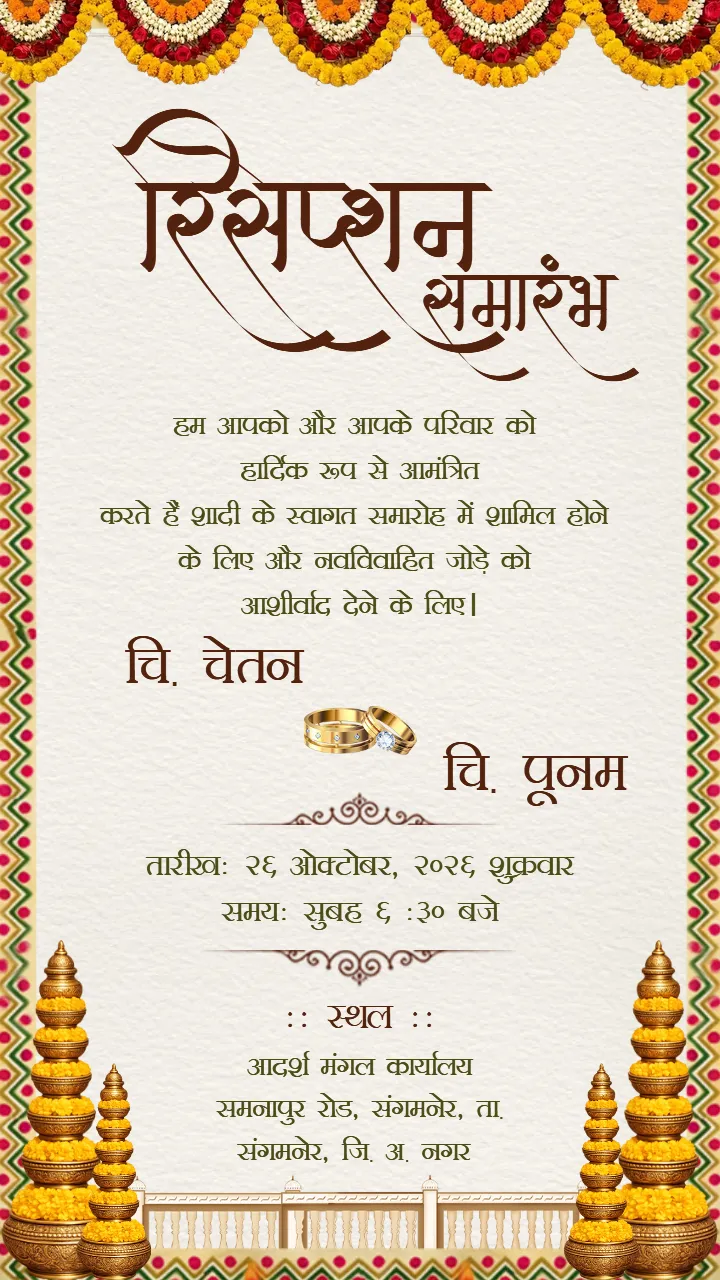 रिसेप्शन
समारंभ
हम आपको और आपके परिवार को
हार्दिक रूप से आमंत्रित
करते हैं शादी के स्वागत समारोह में शामिल होने
के लिए और नवविवाहित जोड़े को
आशीर्वाद देने के लिए|
चि. चेतन
चि. पूनम
तारीख: २६ ओक्टोबर, २०२६ शुक्रवार
समय: सुबह ६ :३० बजे
:: स्थल ::
आदर्श मंगल कार्यालय
समनापुर रोड, संगमनेर, ता.
संगमनेर, जि. अ. नगर